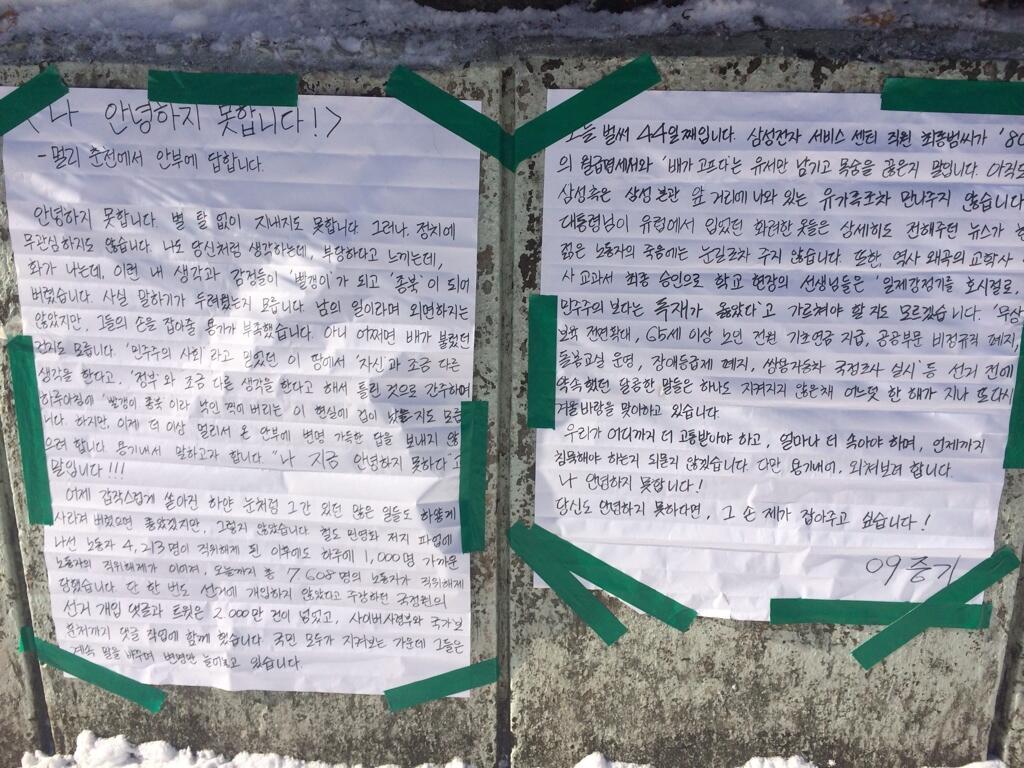 <나 안녕하지 못합니다!>
-멀리 춘천에서 안부에 답합니다.
안녕하지 못합니다. 별 탈 없이 지내지도 못합니다. 그러나, 정치에
무관심하지도 않습니다. 나도 당신처럼 생각하는데, 부당하다고 느끼는데,
화가 나는데, 이런 내 생각과 감정들이 '빨갱이'가 되고 '종북'이 되어
버렸습니다. 사실 말하기가 두려웠는지 모릅니다. 남의 일이라며 외면하지는
않았지만, 그들의 손을 잡아줄 용가 부족했습니다. 아니 어쩌면 배가 불렀던
건지도 모릅니다. '민주주의 사회'라고 믿었던 이 땅에서 '자신'과 조금 다른
생각을 한다고, '정부'와 조금 다른 생각을 한다고 해서 틀린 것으로 간주하며
하루아침에 '빨갱이 종북'이라 낙인 찍어 버리는 이 현실에 겁이 났을지도 모릅
니다. 하지만, 이제 더 이상 멀리서 온 안부에 변명 가득한 답을 보내지 않
으려 합니다. 용기내서 말하고자 합니다. "나 지금 안녕하지 못하다"고
말입니다!!!
어제 갑작스럽게 쏟아진 하얀 눈처럼 그간 있던 많은 일들도 하얗게
사라져 버렸으면 좋았겠지만, 그렇지 않았습니다. 철도 민영화 저지 파업에
나선 노동자 4,213명이 직위해제 된 이후에도 하루에 1,000명 가까운
노동자의 직위해제가 이어져, 오늘까지 총 7608명의 노동자가 직위해제
당했습니다. 단 한 번도 선거에 개입하지 않았다고 주장하던 국정원의
선거 개입 댓글과 트윗은 2,000만 건이 넘었고, 사이버사령부와 국가보
훈처까지 댓글 작업에 함께 했습니다. 국민 모두가 지켜보는 가운데 그들은
계속 말을 바꾸며 변명만 늘어놓고 있습니다.
오늘 벌써 44일째입니다. 삼성전자 서비스 센터 직원 최종범씨가 '80
의 월급명세서와 '배가 고프다'는 유서만 남기고 목숨을 끊은지 말입니다. 아직도
삼성측은 삼성 본관 앞 거리에 나와 있는 유가족조차 만나주지 않습니다
대통령님이 유럽에서 입었던 화려한 옷들은 상세히도 전해주던 뉴스가 한
젊은 노동자의 죽음에는 눈길조차 주지 않습니다. 또한, 역사 왜곡의 교학사
사 교과서 최종 승인으로 학교 현장의 선생님들은 '일제강점기를 호시절로,
민주주의 보다는 독재가 옳았다'고 가르쳐야 할 지도 모르겠습니다. '무상
보육 전면확대, 65세 이상 노인 전원 기초연금 지급, 공공부문 비정규직 폐지,
돌봄교실 운영, 장애등급제 폐지, 쌍용자동차 국정조사 실시' 등 선거 전에
약속했던 달콤한 말들은 하나도 지켜지지 않은채 어느덧 한 해가 지나 또다시
겨울바람을 맞이하고 있습니다.
우리가 어디까지 더 고통받아야 하고, 얼마나 더 속아야 하며, 언제까지
침묵해야 하는지 되묻지 않겠습니다. 다만 용기내어, 외쳐보려 합니다.
나 안녕하지 못합니다!
당신도 안녕하지 못하다면, 그 손 제가 잡아주고 싶습니다!
09 중기